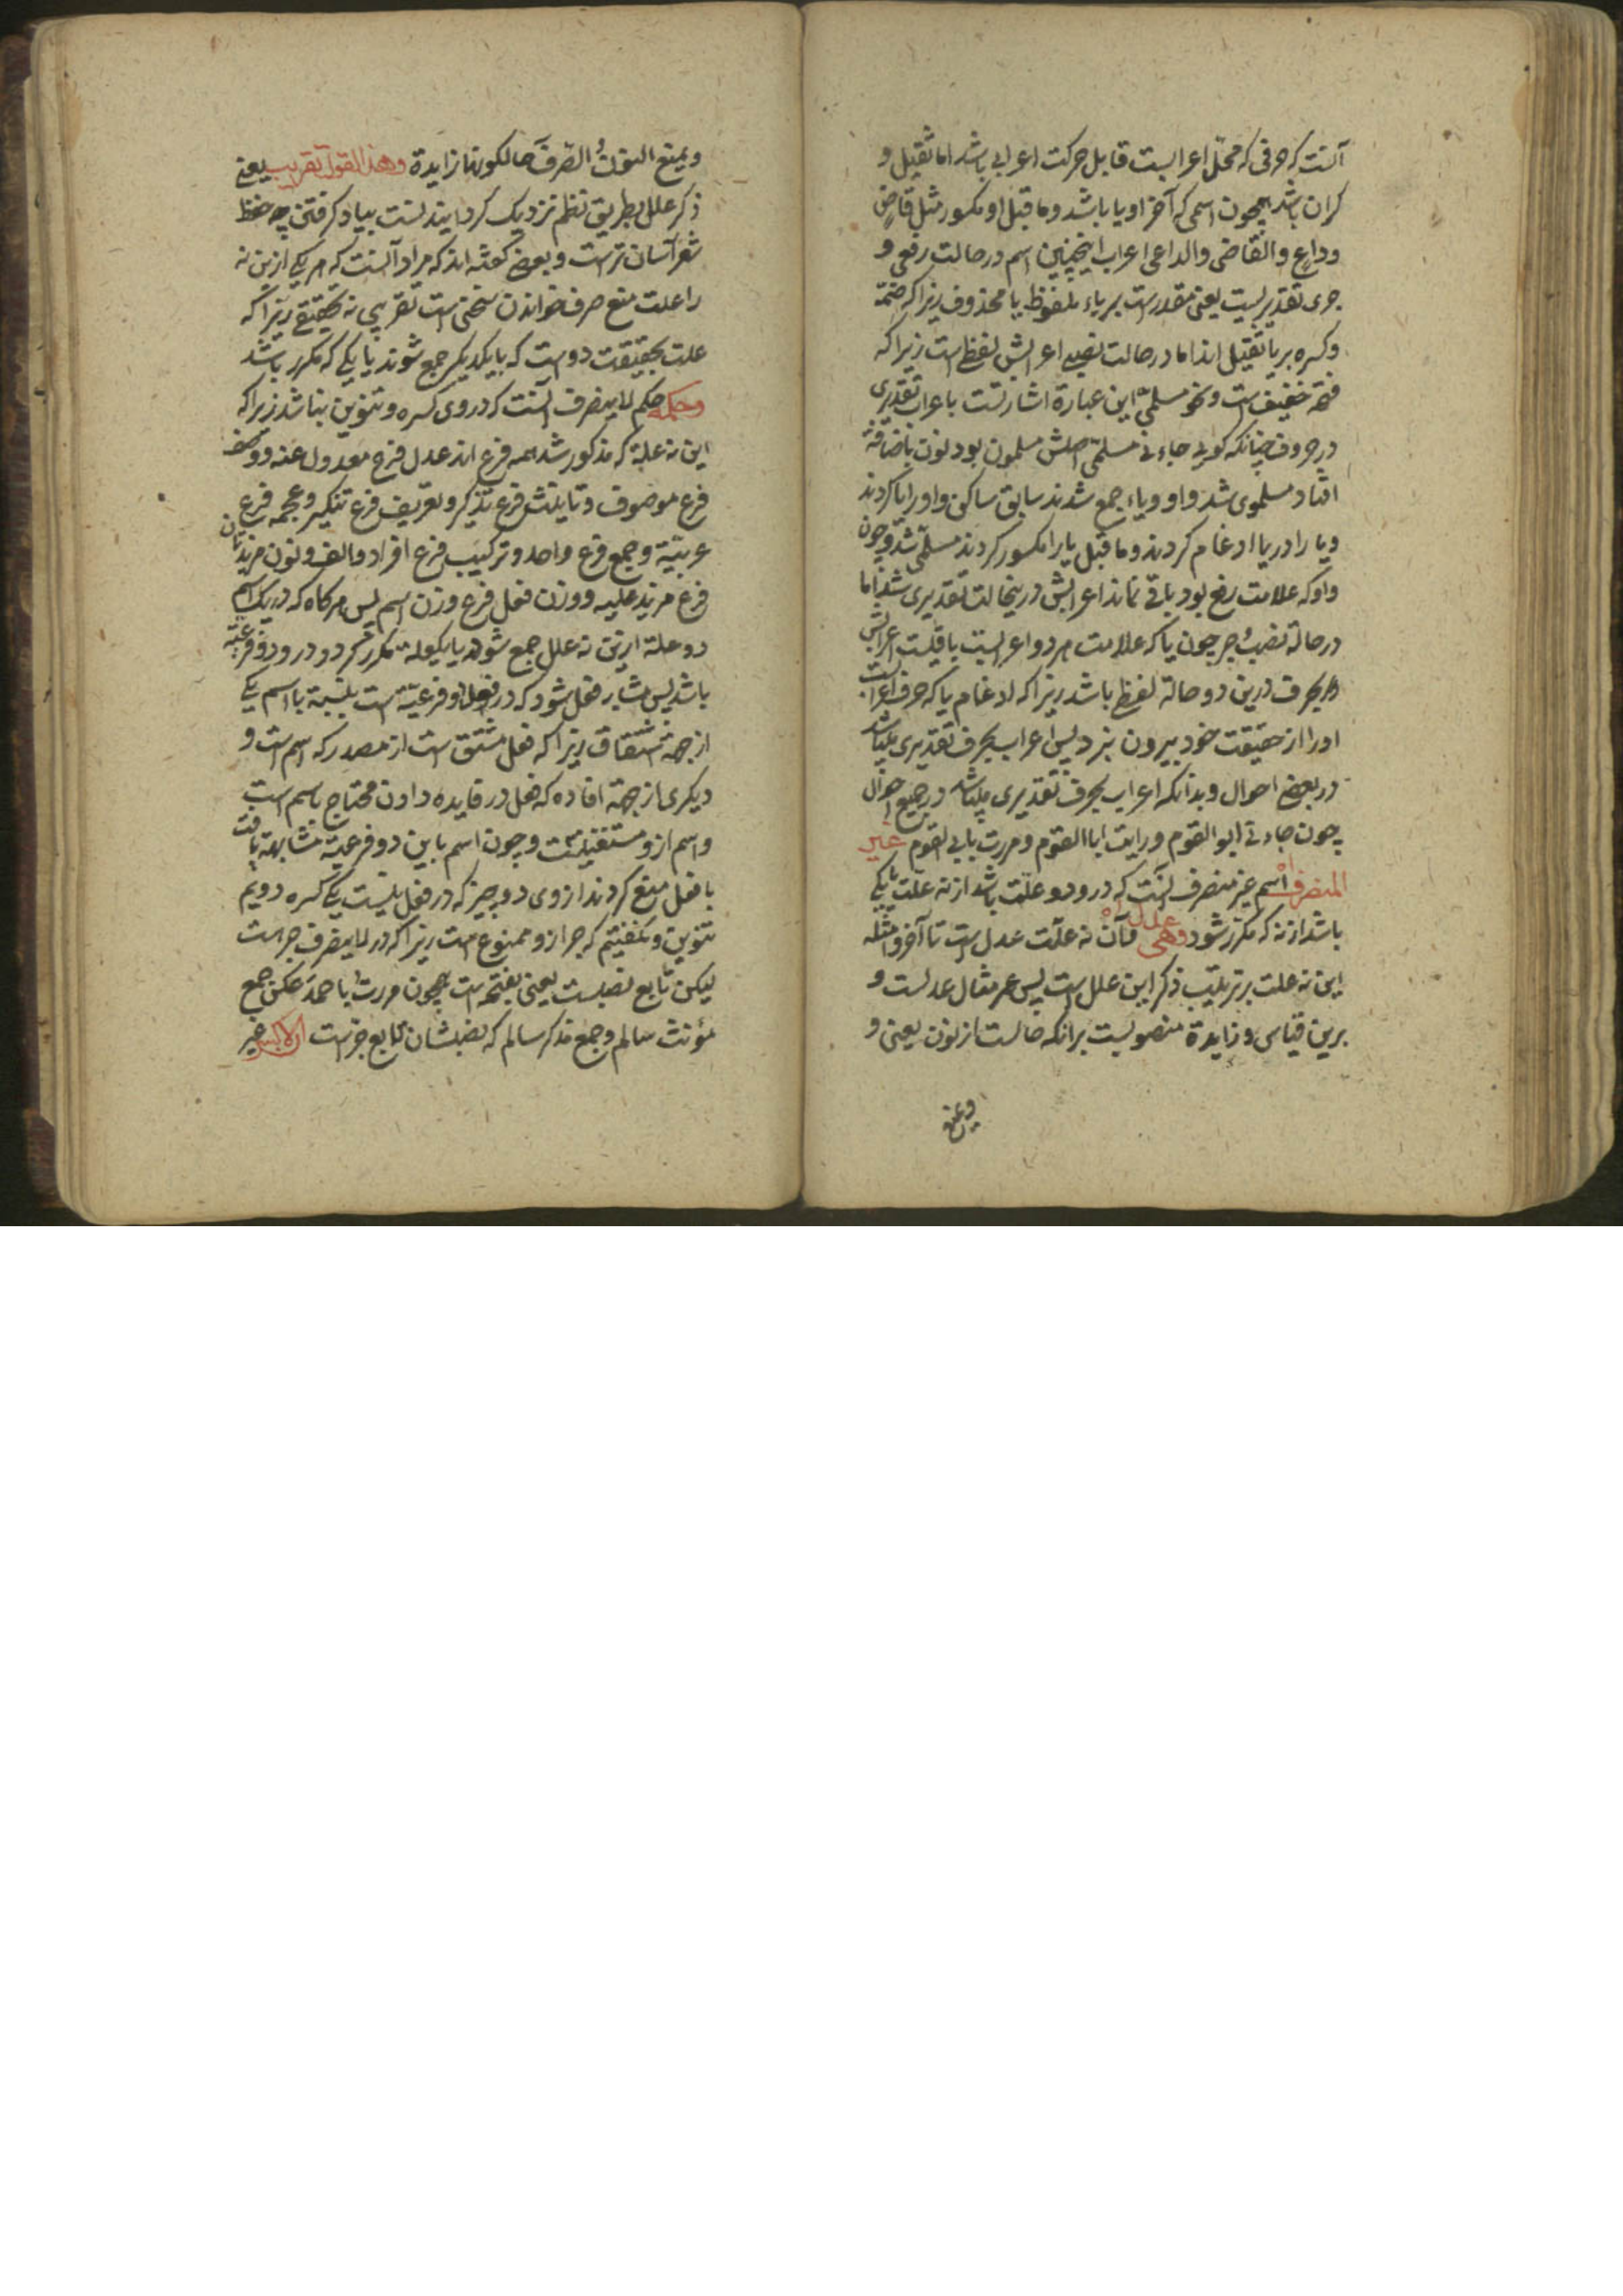 آنست که حرفی که محلّ اعرابست قابل حرکت اعرابی باشد اما ثقیل و
کران باشد همچون اسمی که آخر او یا باشد و ماقبل او مکسور مثل قاضٍ
وداعٍ والقاضی والداعی اعراب اینچنین اسم در حالت رفعی و
جری تقدیریست یعنی مقدرست بر یاء ملفوظ یا محذوف زیراکه ضمّه
وکسره بر یا ثقیل اند اما در حالت نصبی اعرابش لفظی است زیراکه
فتحه خفیف است ونحو مسلمیّ این عبارة اشارتست باعراب تقدیری
در حروف چنانکه کویی جاءنی مسلمیّ اصلش مسلمون بود نون باضافة
افتاد مسلموی شد واو ویاء جمع شدند سابق ساکن واو را یا کردند
ویا را در یا ادغام کردند وماقبل یا را مکسور کردند مسلمیّ شد وچون
واو که علامت رفع بود باقی نماند اعرابش درینحالت تقدیری شد اما
در حالة نصب وجر چون یا که علامت هر دو اعرابست باقیست اعرابش
بحرف درین دو حالة لفظی باشد زیراکه ادغام یا که حرف اعرابست
او را از حقیقت خود بیرون نبرد پس اعراب بحرف تقدیری میباشد
در بعضی احوال وبدانکه اعراب بحرف تقدیری میباشد در جمیع احوال
چون جاءنی ابو القوم ورایت ابا القوم ومررت بابی القوم غیر
المنصرف اسم غیر منصرف آنست که درو دو علّت باشد از نه علّت یا یکی
باشد از نه که مکرّر شود وهی وآن نه علّت عدل است تا آخر وامثله
این نه علت بر ترتیب ذکر این علل است پس عمر مثال عدلست و
برین قیاس وزایدة منصوبست برانکه حالست از نون یعنی و
ویمنع
ویمنع النونُ الصّرفَ حالکونها زایدة وهذا القول تقریب یعنی
ذکر علل بطریق نظم نزدیک کردانیدنست بیاد کرفتن چه حفظ
شعر آسان ترست وبعضی کفته اند که مراد آنست که هر یکی ازین نه
را علت منع صرف خواندن سخنی است تقریبی نه تحقیقی زیراکه
علت بحقیقت دو است که بایکدیکر جمع شوند یا یکی که مکرر باشد
وحکمه حکم لاینصرف آنست که در وی کسره وتنوین نباشد زیراکه
این نه علة که مذکور شد همه فرع اند عدل فرع معدول عنه ووصف
فرع موصوف وتانیث فرع تذکیر وتعریف فرع تنکیر وعجمه فرع
عربیّة وجمع فرع واحد وترکیب فرع افراد والف ونون مزیدتان
فرع مزید علیه ووزن فعل فرع وزن اسم پس هرکاه که در یک اسم
دو علة ازین نه علل جمع شوند یا یکعلة مکرر کردد درو دو فرعیّة
باشد پس مشابه فعل شود که در فعل دو فرعیّة است بنسبة با اسم یکی
از جهة اشتقاق زیراکه فعل مشتق است از مصدر که اسم است و
دیکری از جهة افاده که فعل در فایده دادن محتاج باسم است
واسم ازو مستغنیست وچون اسم باین دو فرعیة مشابهة یافت
با فعل منع کردند از وی دو چیز که در فعل نیست یکی کسره دویّم
تنوین ونکفتیم که جر ازو ممنوع است زیراکه در لاینصرف جر است
لیکن تابع نصبست یعنی بفتحه است همچون مررت باحمد عکس جمع
مؤنث سالم وجمع مذکر سالم که نصبشان تابع جرّست غیر